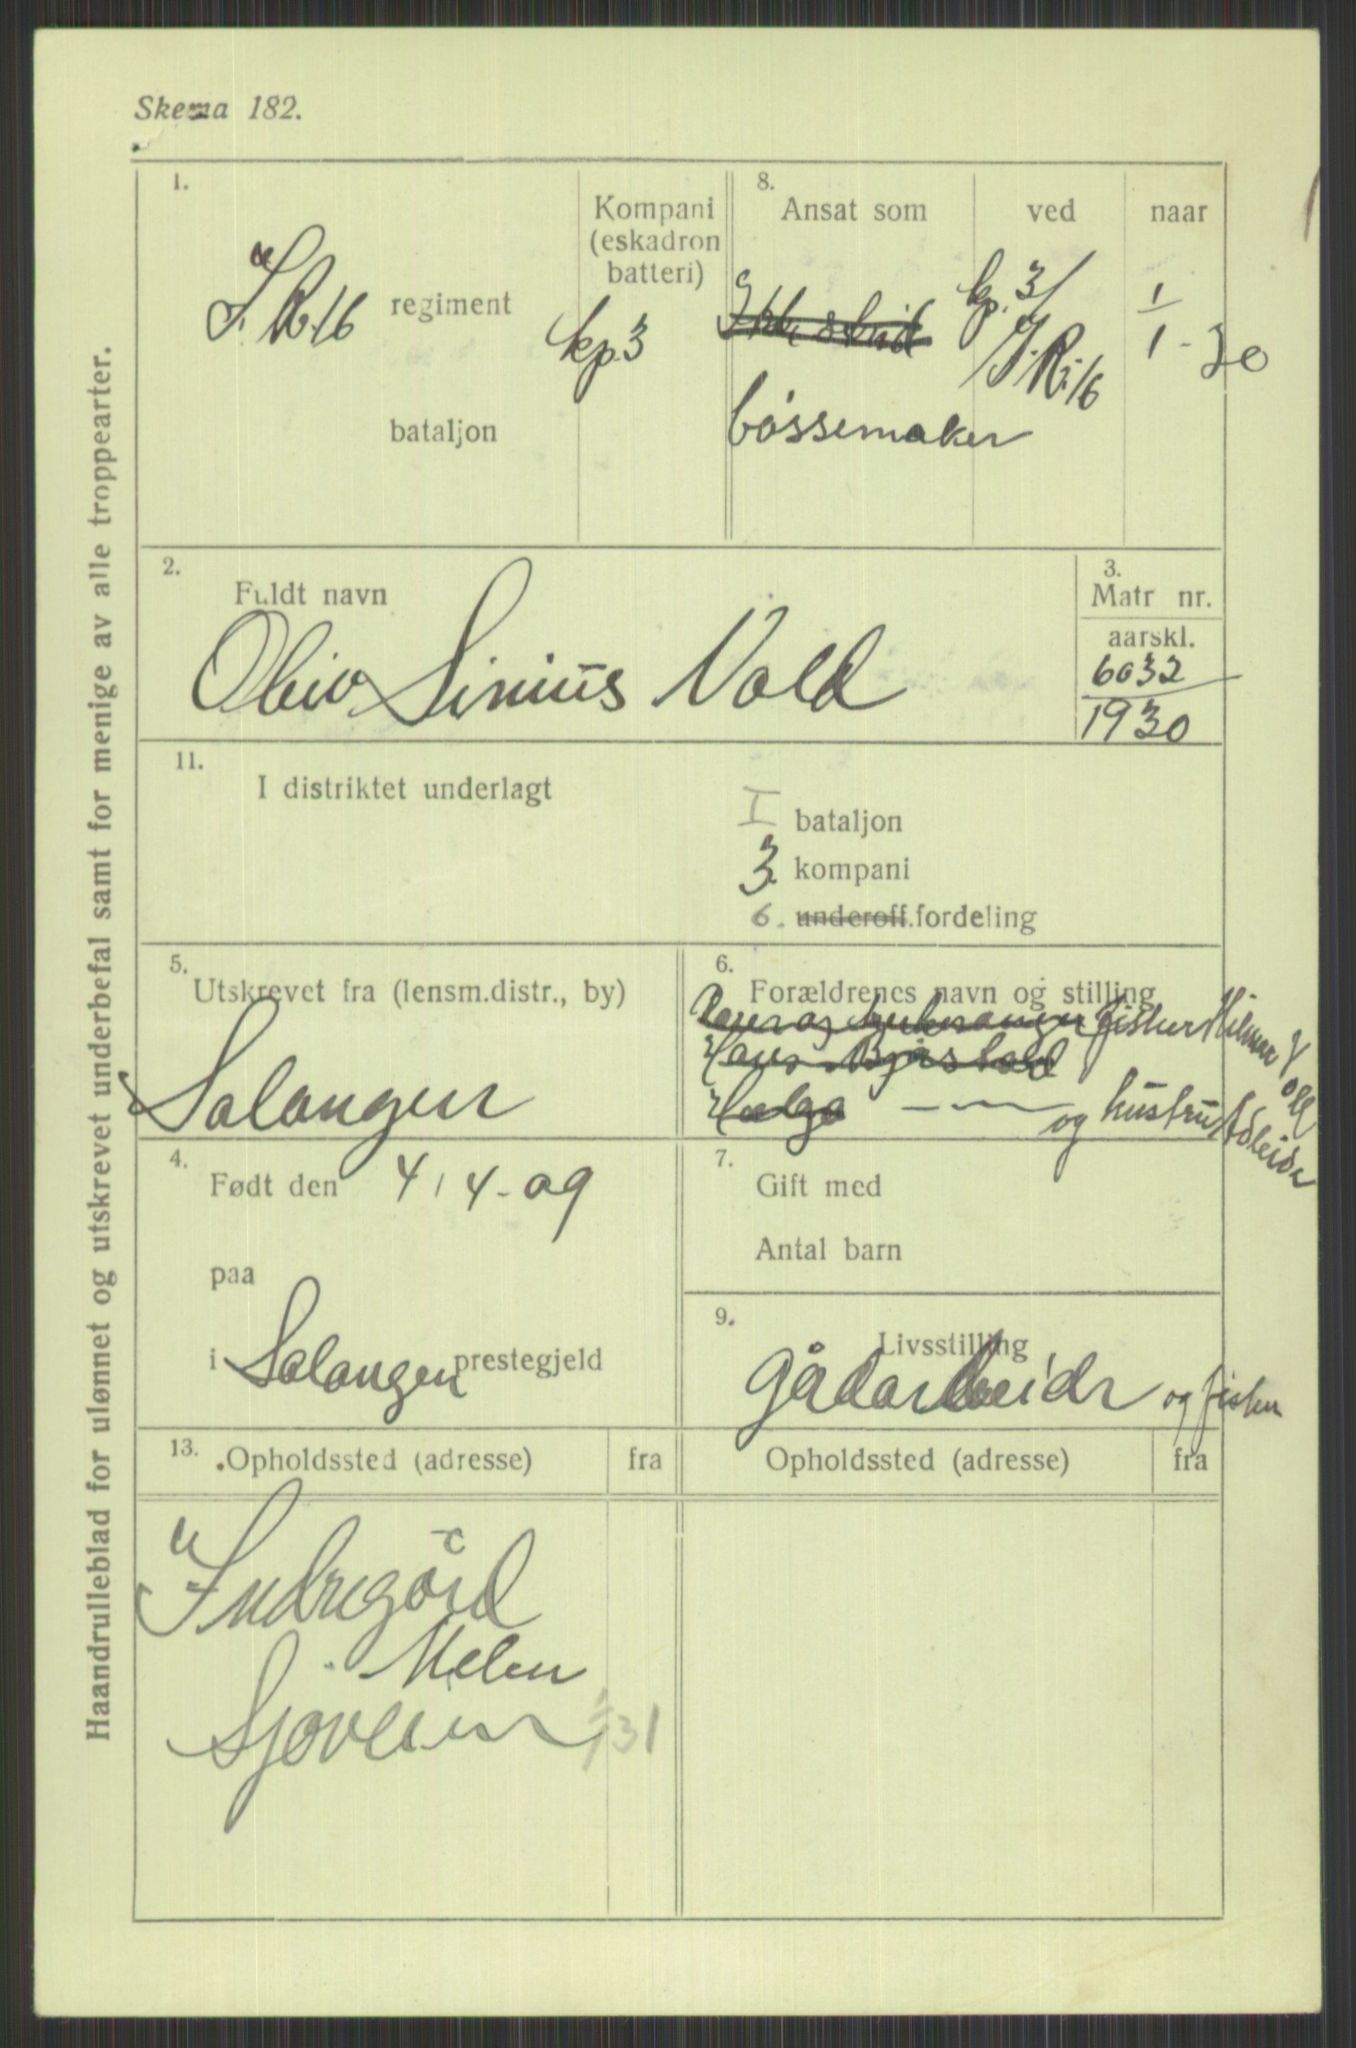 Skema 182.
Haandrulleblad for ulønnet og utskrevet underbefal samt for menige av alle troppearter.
1.
I.R.16 regiment
bataljon
Kompani
(eskadron
batteri)
kp.3
8.
Ansat som
ved
naar
bössemaker
kp. 3/
I.R.16
1/1 - 30
2.
Fuldt navn
Sinius Vold
3.
Matr nr.
aarskl.
6032
1930
11.
I distriktet underlagt
I bataljon
3 kompani
6. underoff.fordeling
5.
Utskrevet fra (lensm.distr., by)
Salangen
6.
Forældrenes navn og stilling
fisker Hilmar Voll
Hans
Helga — „ — og hustru
4.
Født den 4/4-09
paa
i Salangen prestegjeld
7.
Gift med
Antal barn
9.
Livsstilling
Gådarbeidr og fisker
13.
Opholdssted (adresse)
fra
Opholdssted (adresse)
fra
Indregård
Melen
Sjøveien 31